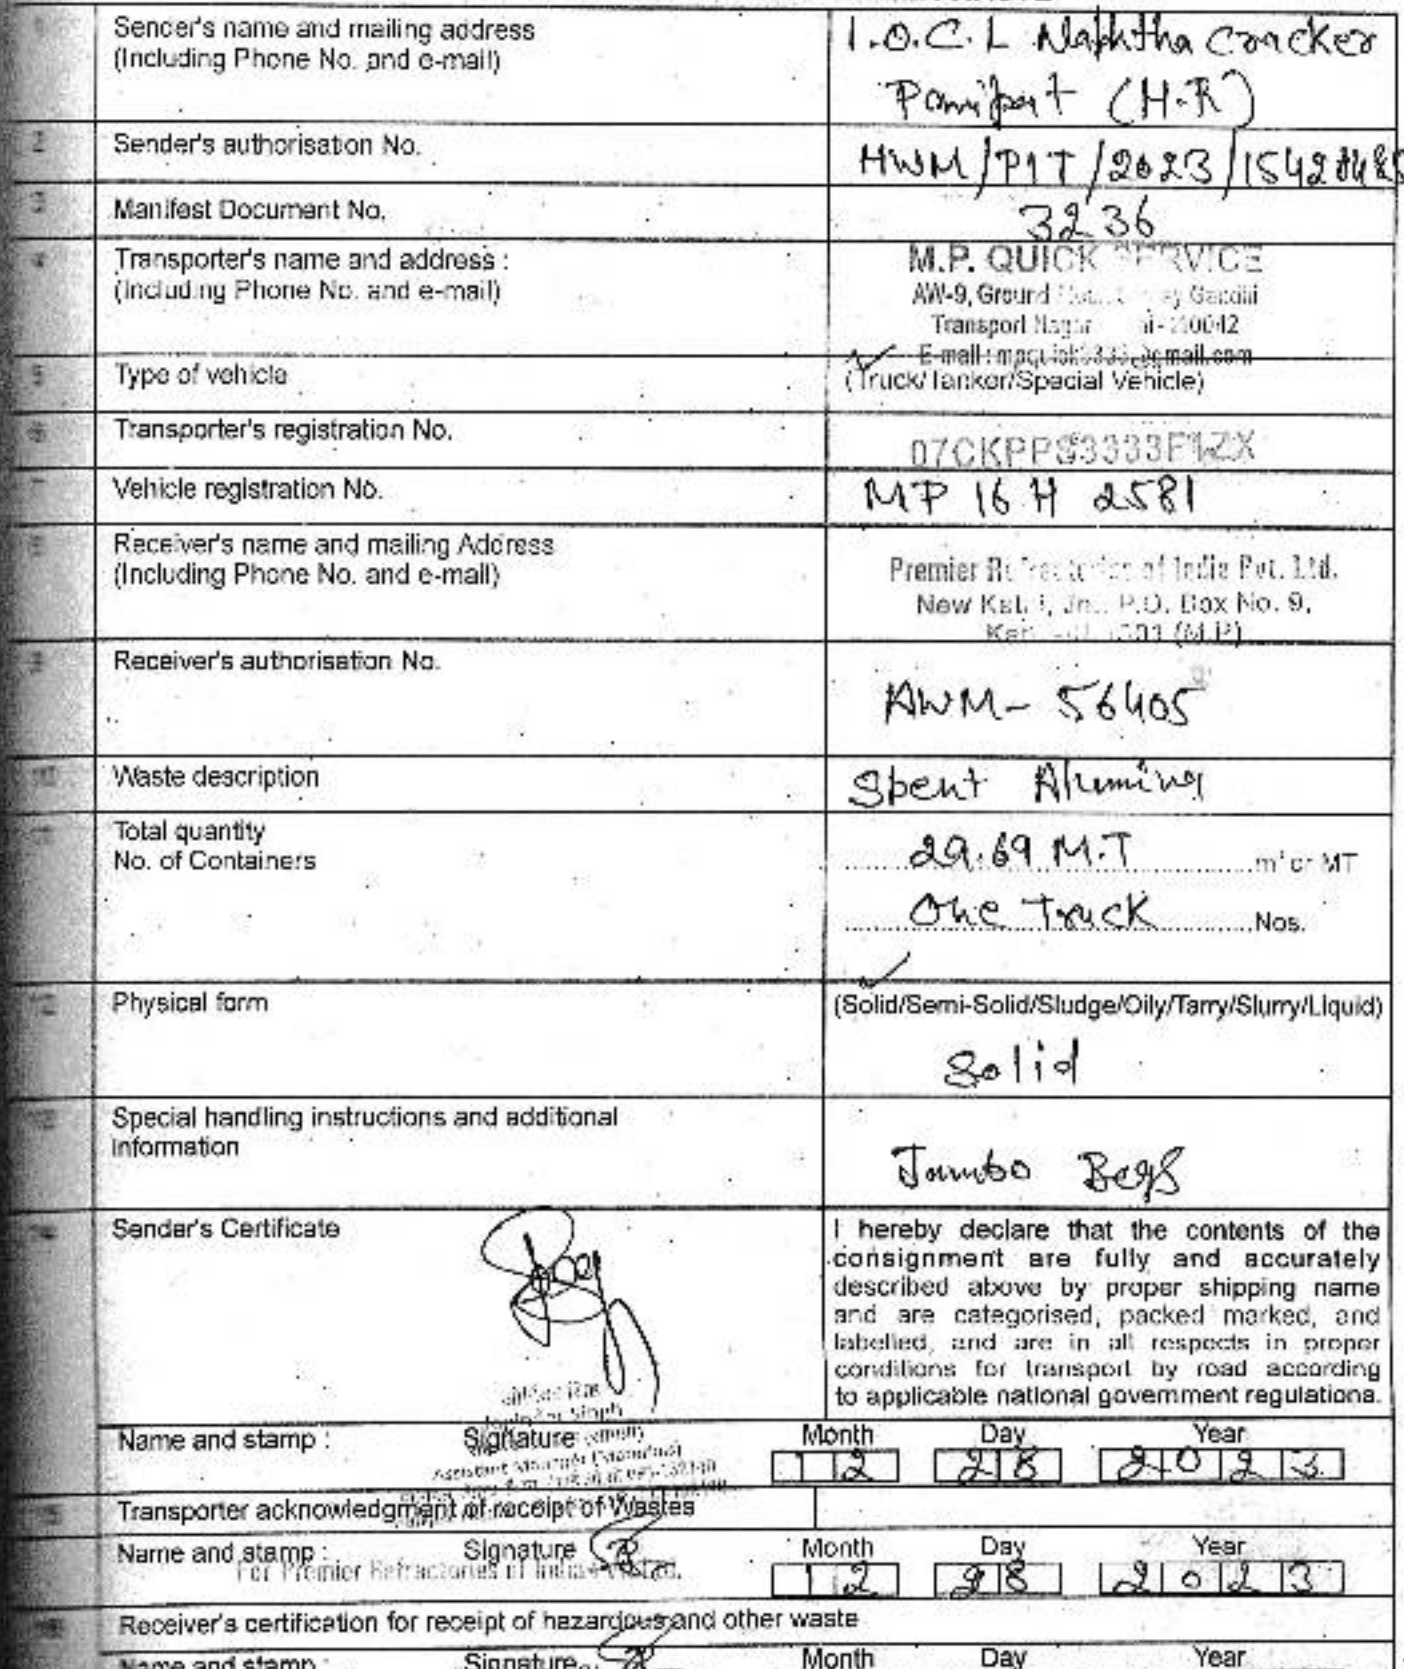 Sender's name and mailing address
(Including Phone No. and e-mail)
I.O.C.L Naphtha Cracker
Panipat (H.R)
2 Sender's authorisation No.
HWM/P1T/2023/
3 Manifest Document No.
3236
4 Transporter's name and address :
(Including Phone No. and e-mail)
M.P. QUICK SERVICE
AW-9, Ground Gandhi
Transport Nagar
E-mail :
5 Type of vehicle
(Truck/Tanker/Special Vehicle)
6 Transporter's registration No.
07CKPPS3333F1ZX
7 Vehicle registration No.
MP 16 H 2581
Receiver's name and mailing Address
(Including Phone No. and e-mail)
Premier Refractories of India Pvt. Ltd.
New Katni, Jn.. P.O. Box No. 9,
(M.P)
Receiver's authorisation No.
AWM- 56405
Waste description
Spent Alumina
Total quantity
No. of Containers
29.69 M.T m³ or MT
One Truck Nos.
Physical form
(Solid/Semi-Solid/Sludge/Oily/Tarry/Slurry/Liquid)
Solid
Special handling instructions and additional
information
Jumbo Bags
Sender's Certificate
I hereby declare that the contents of the
consignment are fully and accurately
described above by proper shipping name
and are categorised, packed marked, and
labelled, and are in all respects in proper
conditions for transport by road according
to applicable national government regulations.
Singh
Name and stamp : Signature Month Day Year
12 28 2023
Assistant Manager
Transporter acknowledgment of receipt of Wastes
Name and stamp : Signature Month Day Year
For Premier Refractories of India 12 28 2023
Receiver's certification for receipt of hazardous and other waste
Name and stamp : Signature Month Day Year